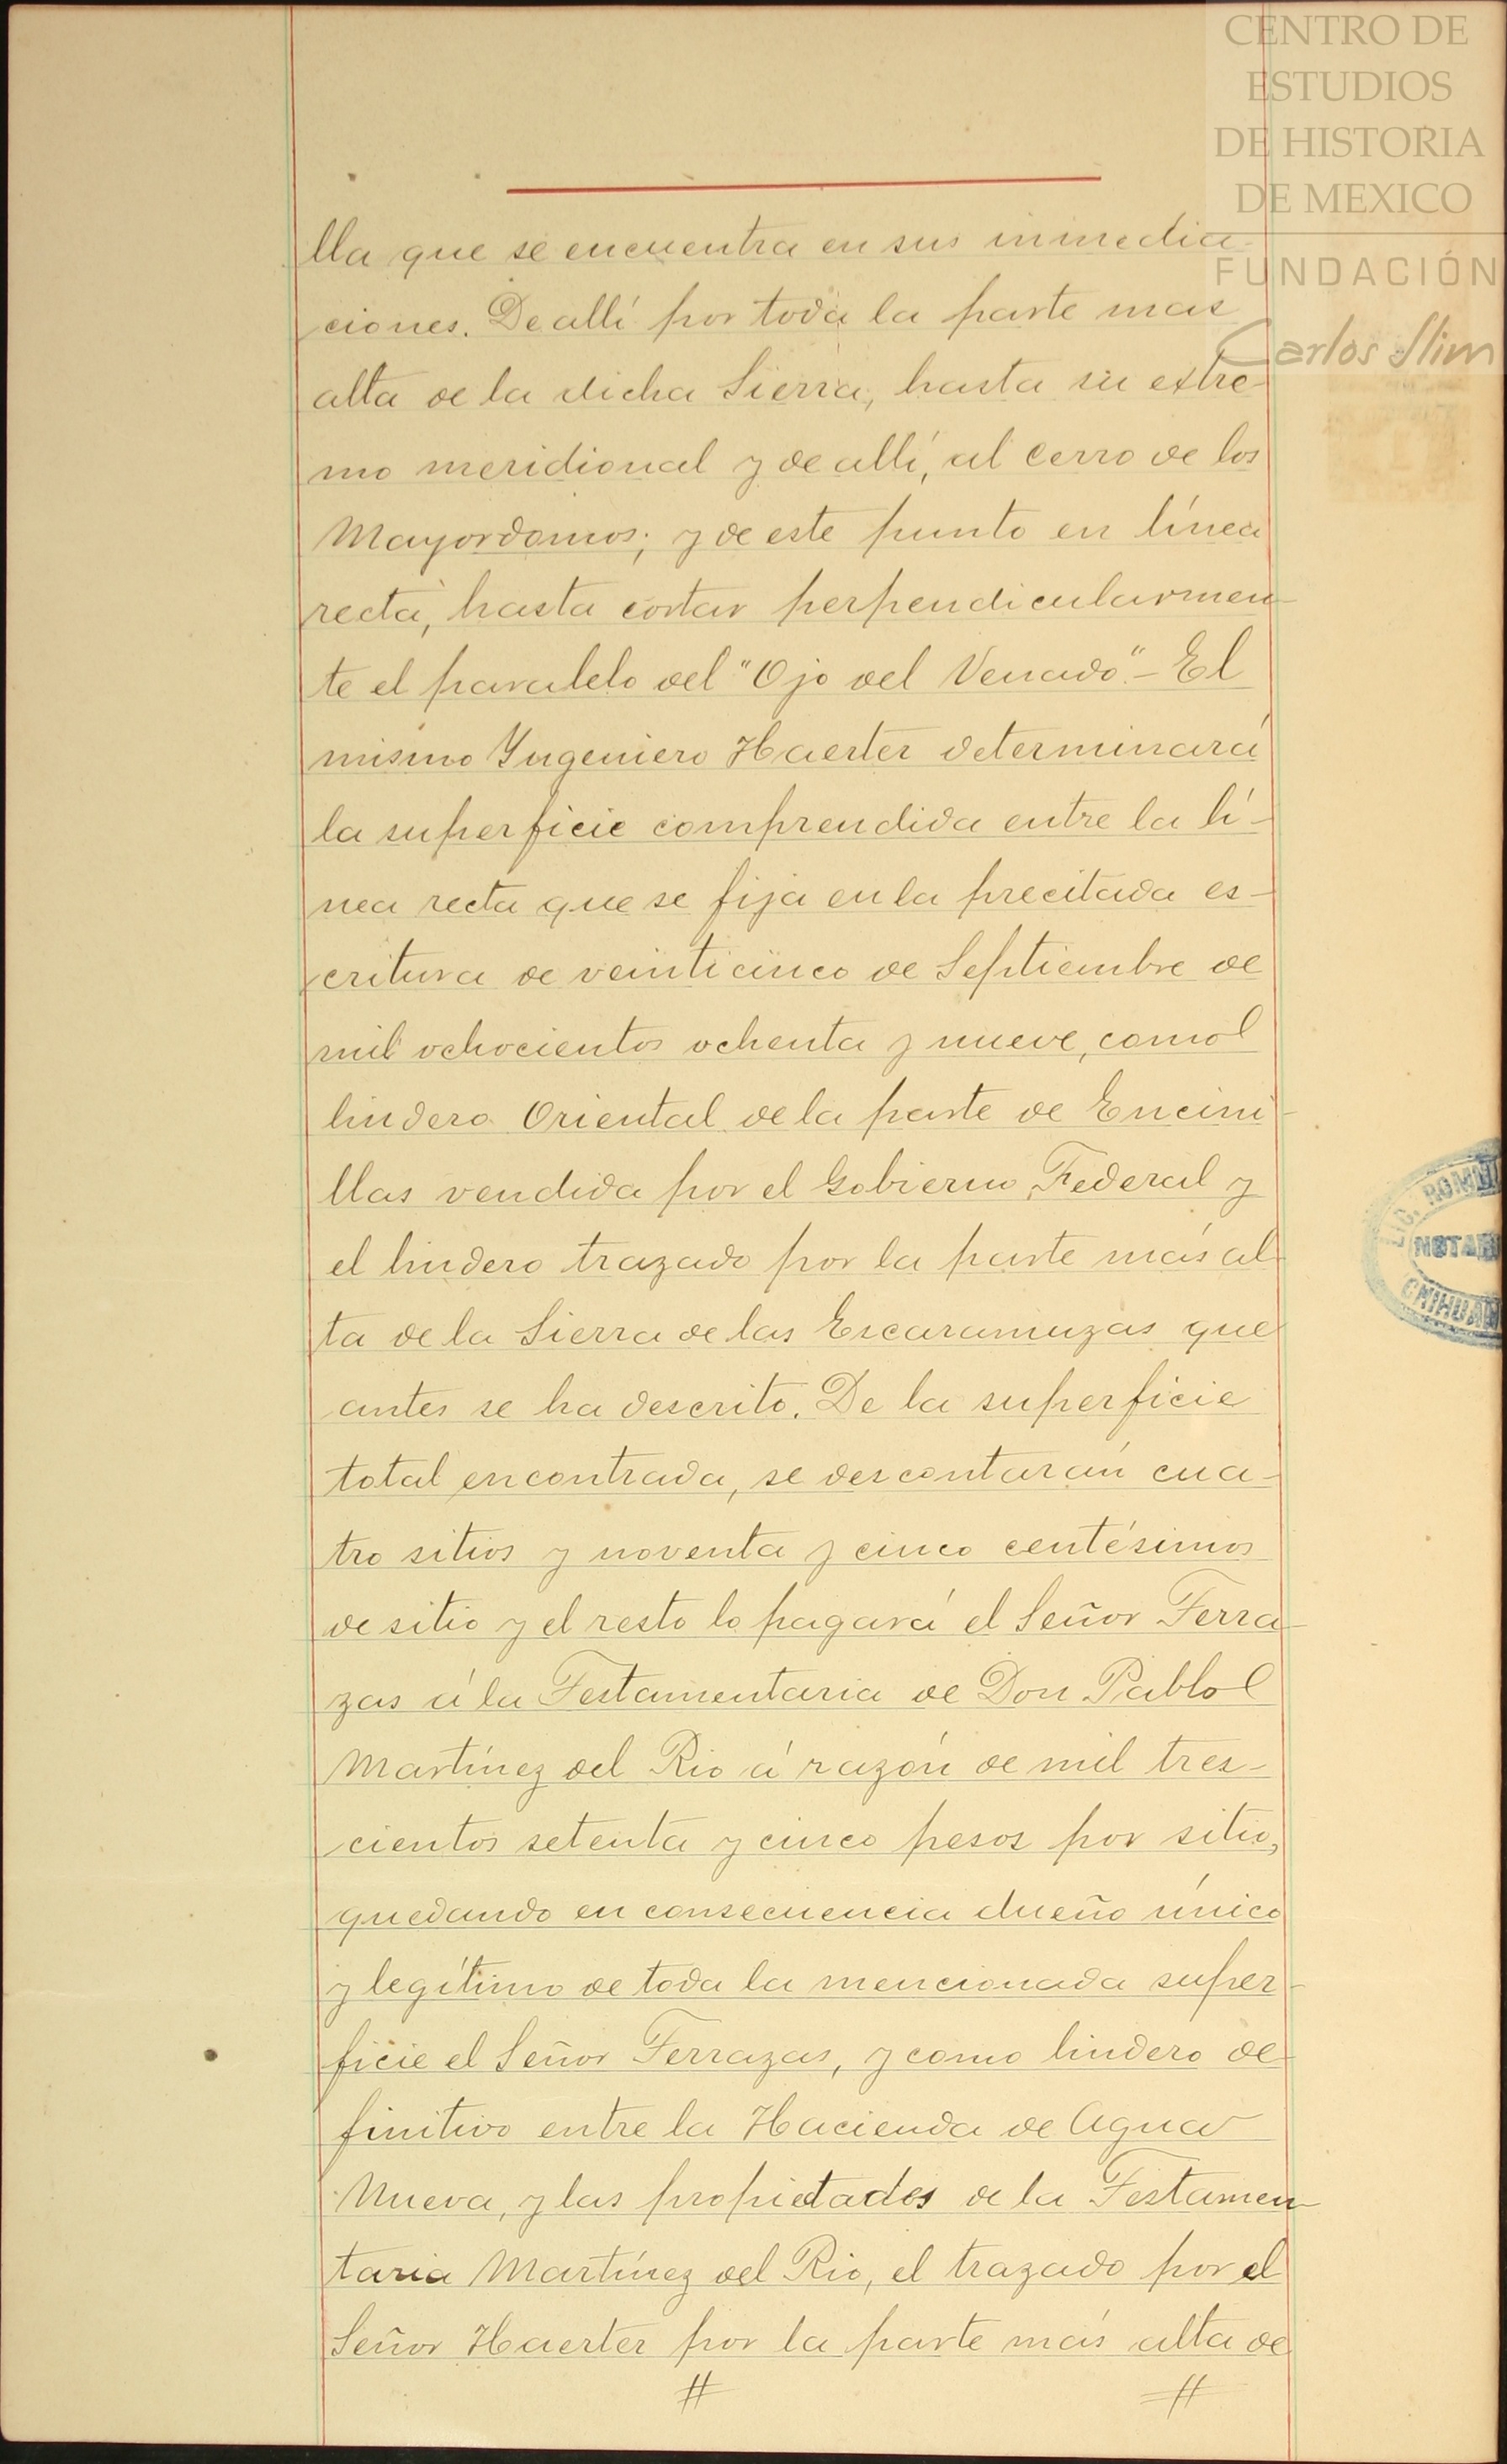 CENTRO DE
ESTUDIOS
DE HISTORIA
DE MEXICO
FUNDACIÓN
Carlos Slim
lla que se encuentra en sus inmedia-
ciones. De allí por toda la parte mas
alta de la dicha Sierra, hasta su estre-
mo meridional y de allí, al cerro de los
Mayordomos; y de este punto en línea
recta, hasta cortar perpendicularmen-
te el paralelo del "Ojo del Venado".- El
mismo Ingeniero Haerter determinará
la superficie comprendida entre la lí-
nea recta que se fija en la precitada es-
critura de veinticinco de Septiembre de
mil ochocientos ochenta y nueve, como
lindero Oriental de la parte de Encini-
llas vendida por el Gobierno Federal y
el lindero trazado por la parte más al-
ta de la Sierra de las Escaramuzas que
antes se ha descrito. De la superficie
total encontrada, se descontarán cua-
tro sitios y noventa y cinco centésimos
de sitio y el resto lo pagará el Señor Terra-
zas á la Testamentaria de Don Pablo
Martínez del Rio á razón de mil tres-
cientos setenta y cinco pesos por sitio,
quedando en consecuencia dueño único
y legítimo de toda la mencionada super-
ficie el Señor Terrazas, y como lindero de-
finitivo entre la Hacienda de Agua
Nueva, y las propiedades de la Testamen-
taria Martínez del Rio, el trazado por el
Señor Haerter por la parte más alta de
LIC. ROM
NOTA
CHIHUAH